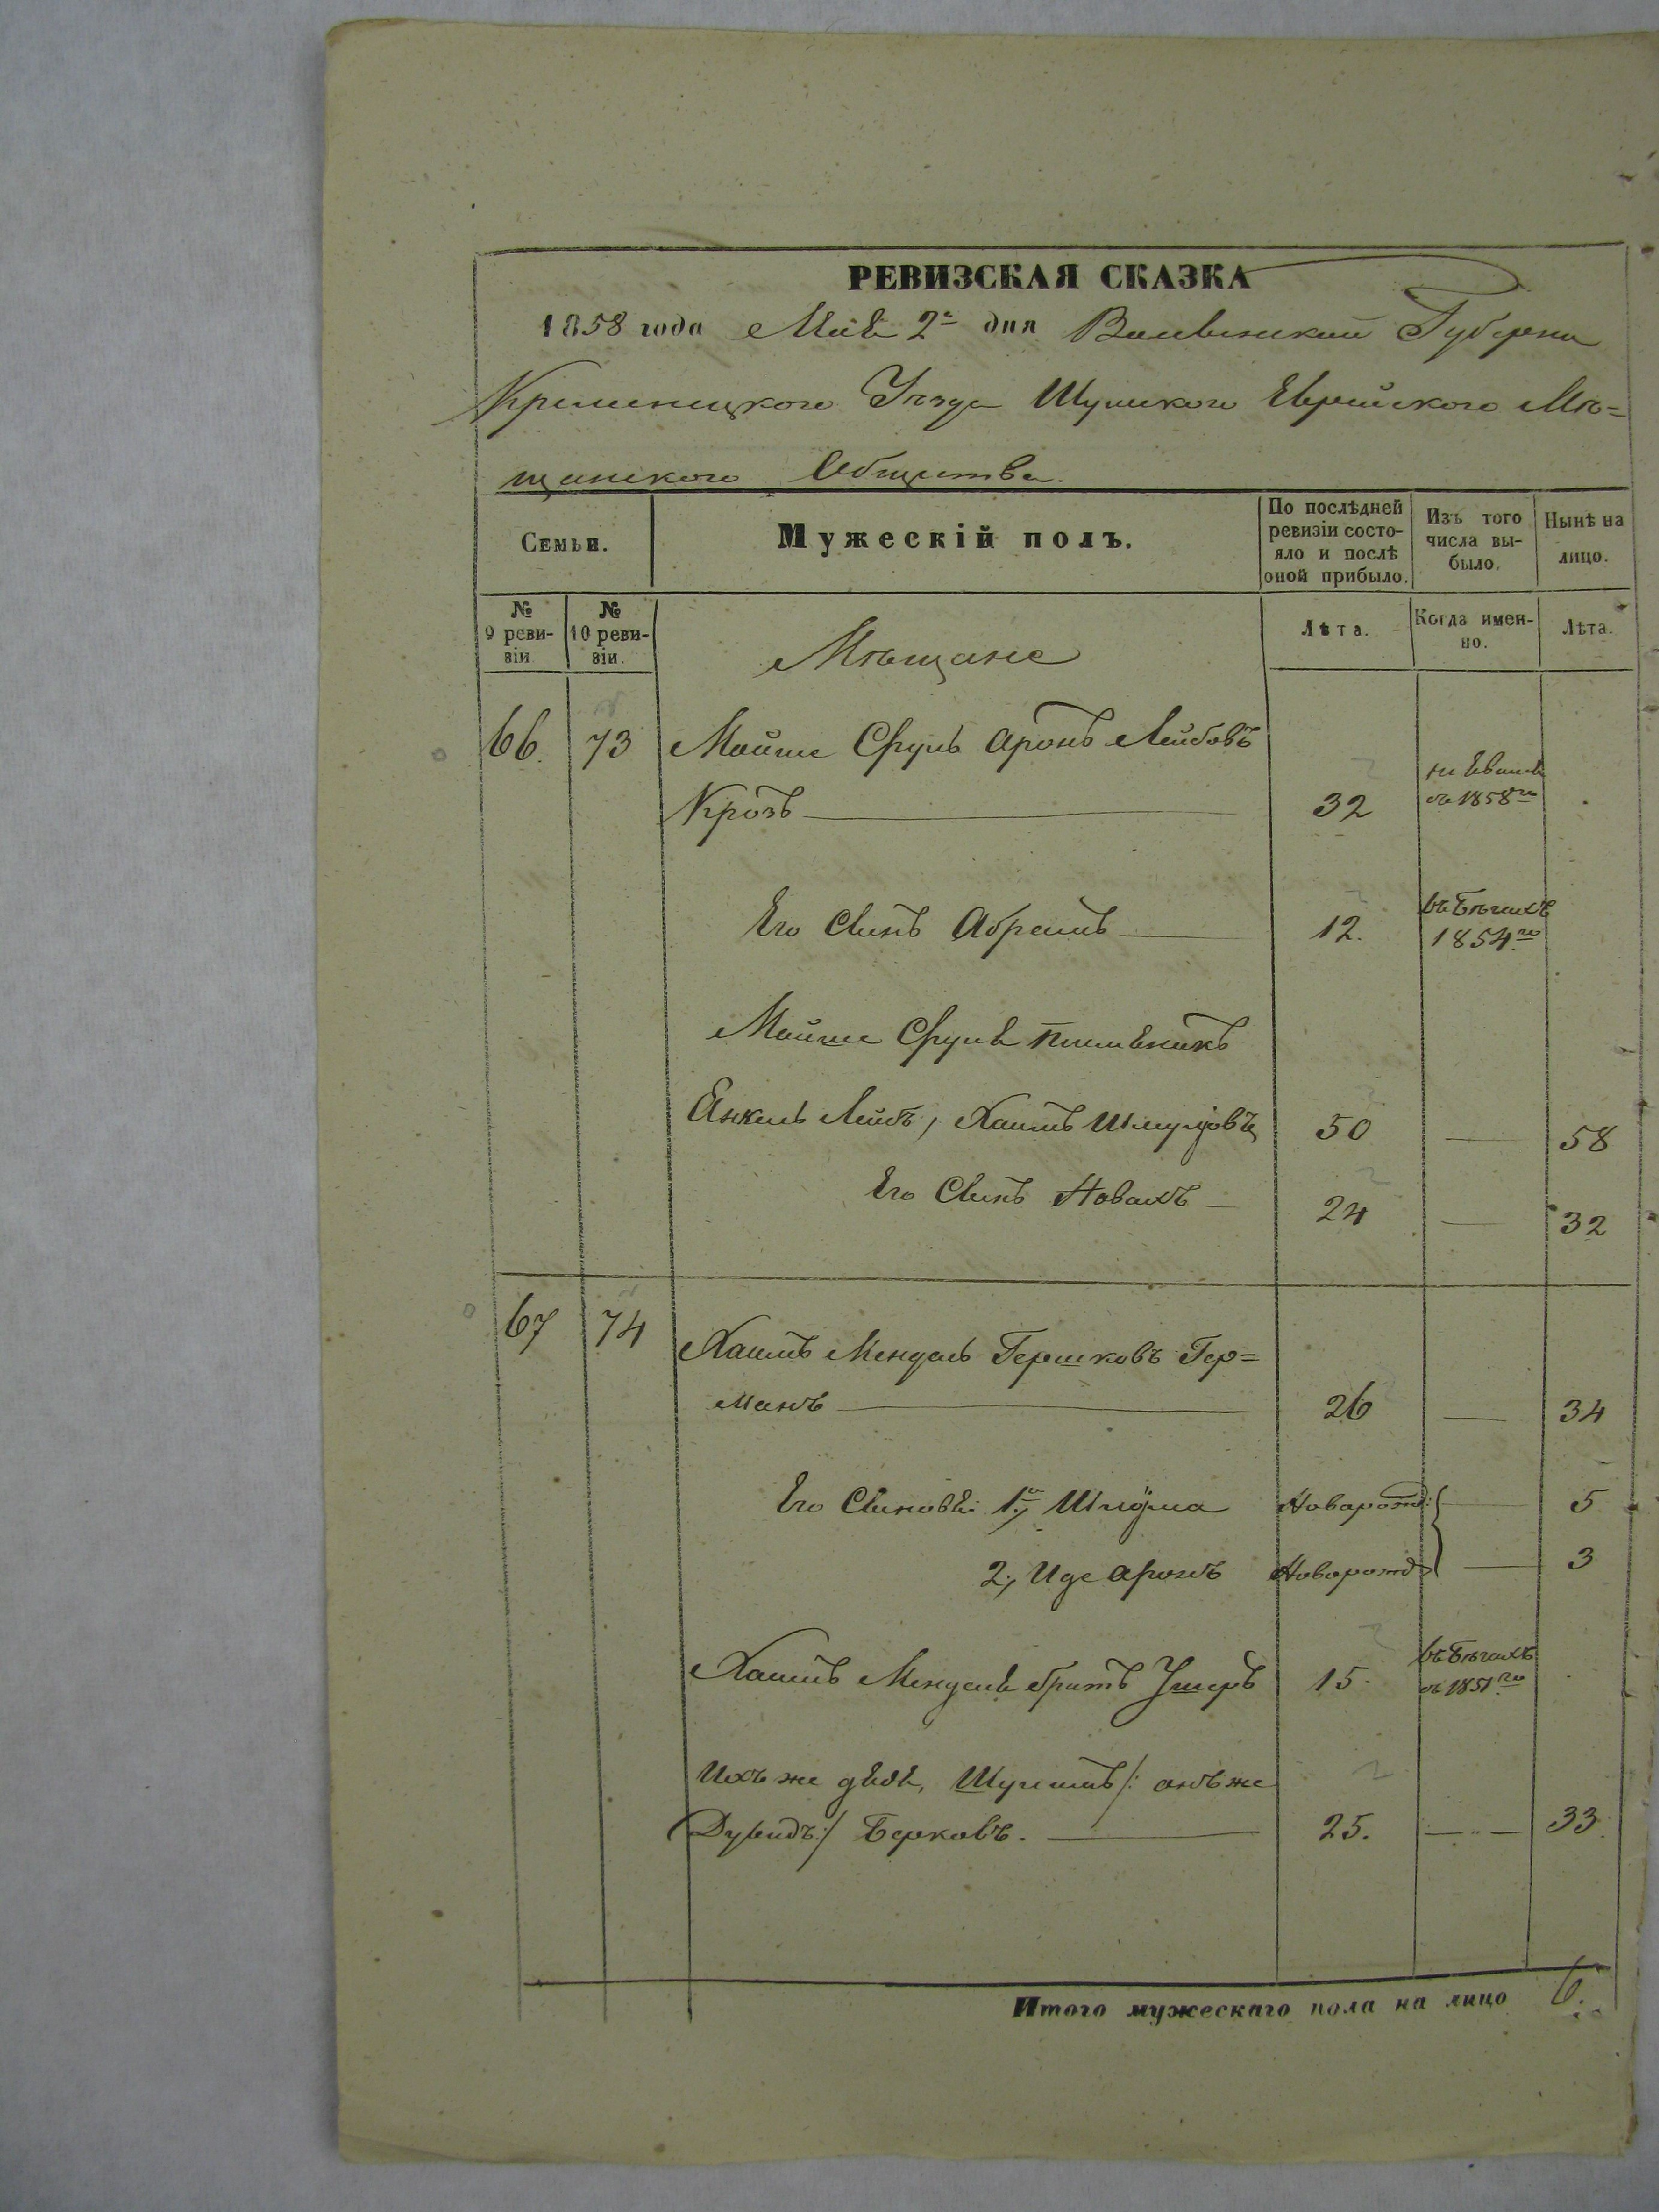 РЕВИЗСКАЯ СКАЗКА
1858 года Мая 2го дня Волынской Губерни
Кременецкого Уѣзда Шумского Еврейского Мѣ=
щанского Общества
Семьи.
Мужескій полъ.
По послѣдней ревизіи состо-яло и послѣ оной прибыло.
Изъ того числа вы-было.
Нынѣ на лицо.
№ 9 реви-зіи
№ 10 реви-зіи.
Мѣщане
Лѣта.
Когда имен-но.
Лѣта.
66. 73 Мойше Сруль Аронъ Лейбовъ
Крозъ 32 съ 1858го
Его Сынъ Абрамъ 12. въ бѣгахъ 1854го
Мойше Сруля племеникъ
Янкель Лейбъ, Хаимъ Шмулiовъ 50 — 58
Его Сынъ Новахъ — 24 — 32
67 74 Хаимъ Мендель Гершковъ Гер=
манъ 26 — 34
Его Сыновья: 1й, Шлiома Новорожд: — 5
2, Иде Аронъ Новорожд — 3
Хаимъ Менделя братъ Ушеръ 15. въ бѣгахъ съ 1851го
Ихъ же дядя, Шулимъ /: онъ же
Дувидъ:/ Берковъ. 25. — 33
Итого мужескаго пола на лицо 6.